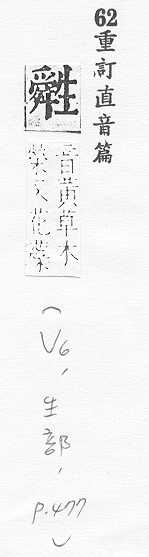 62重訂直音篇
䑞
音黃草木
榮又花
(V6,生部,p.477)